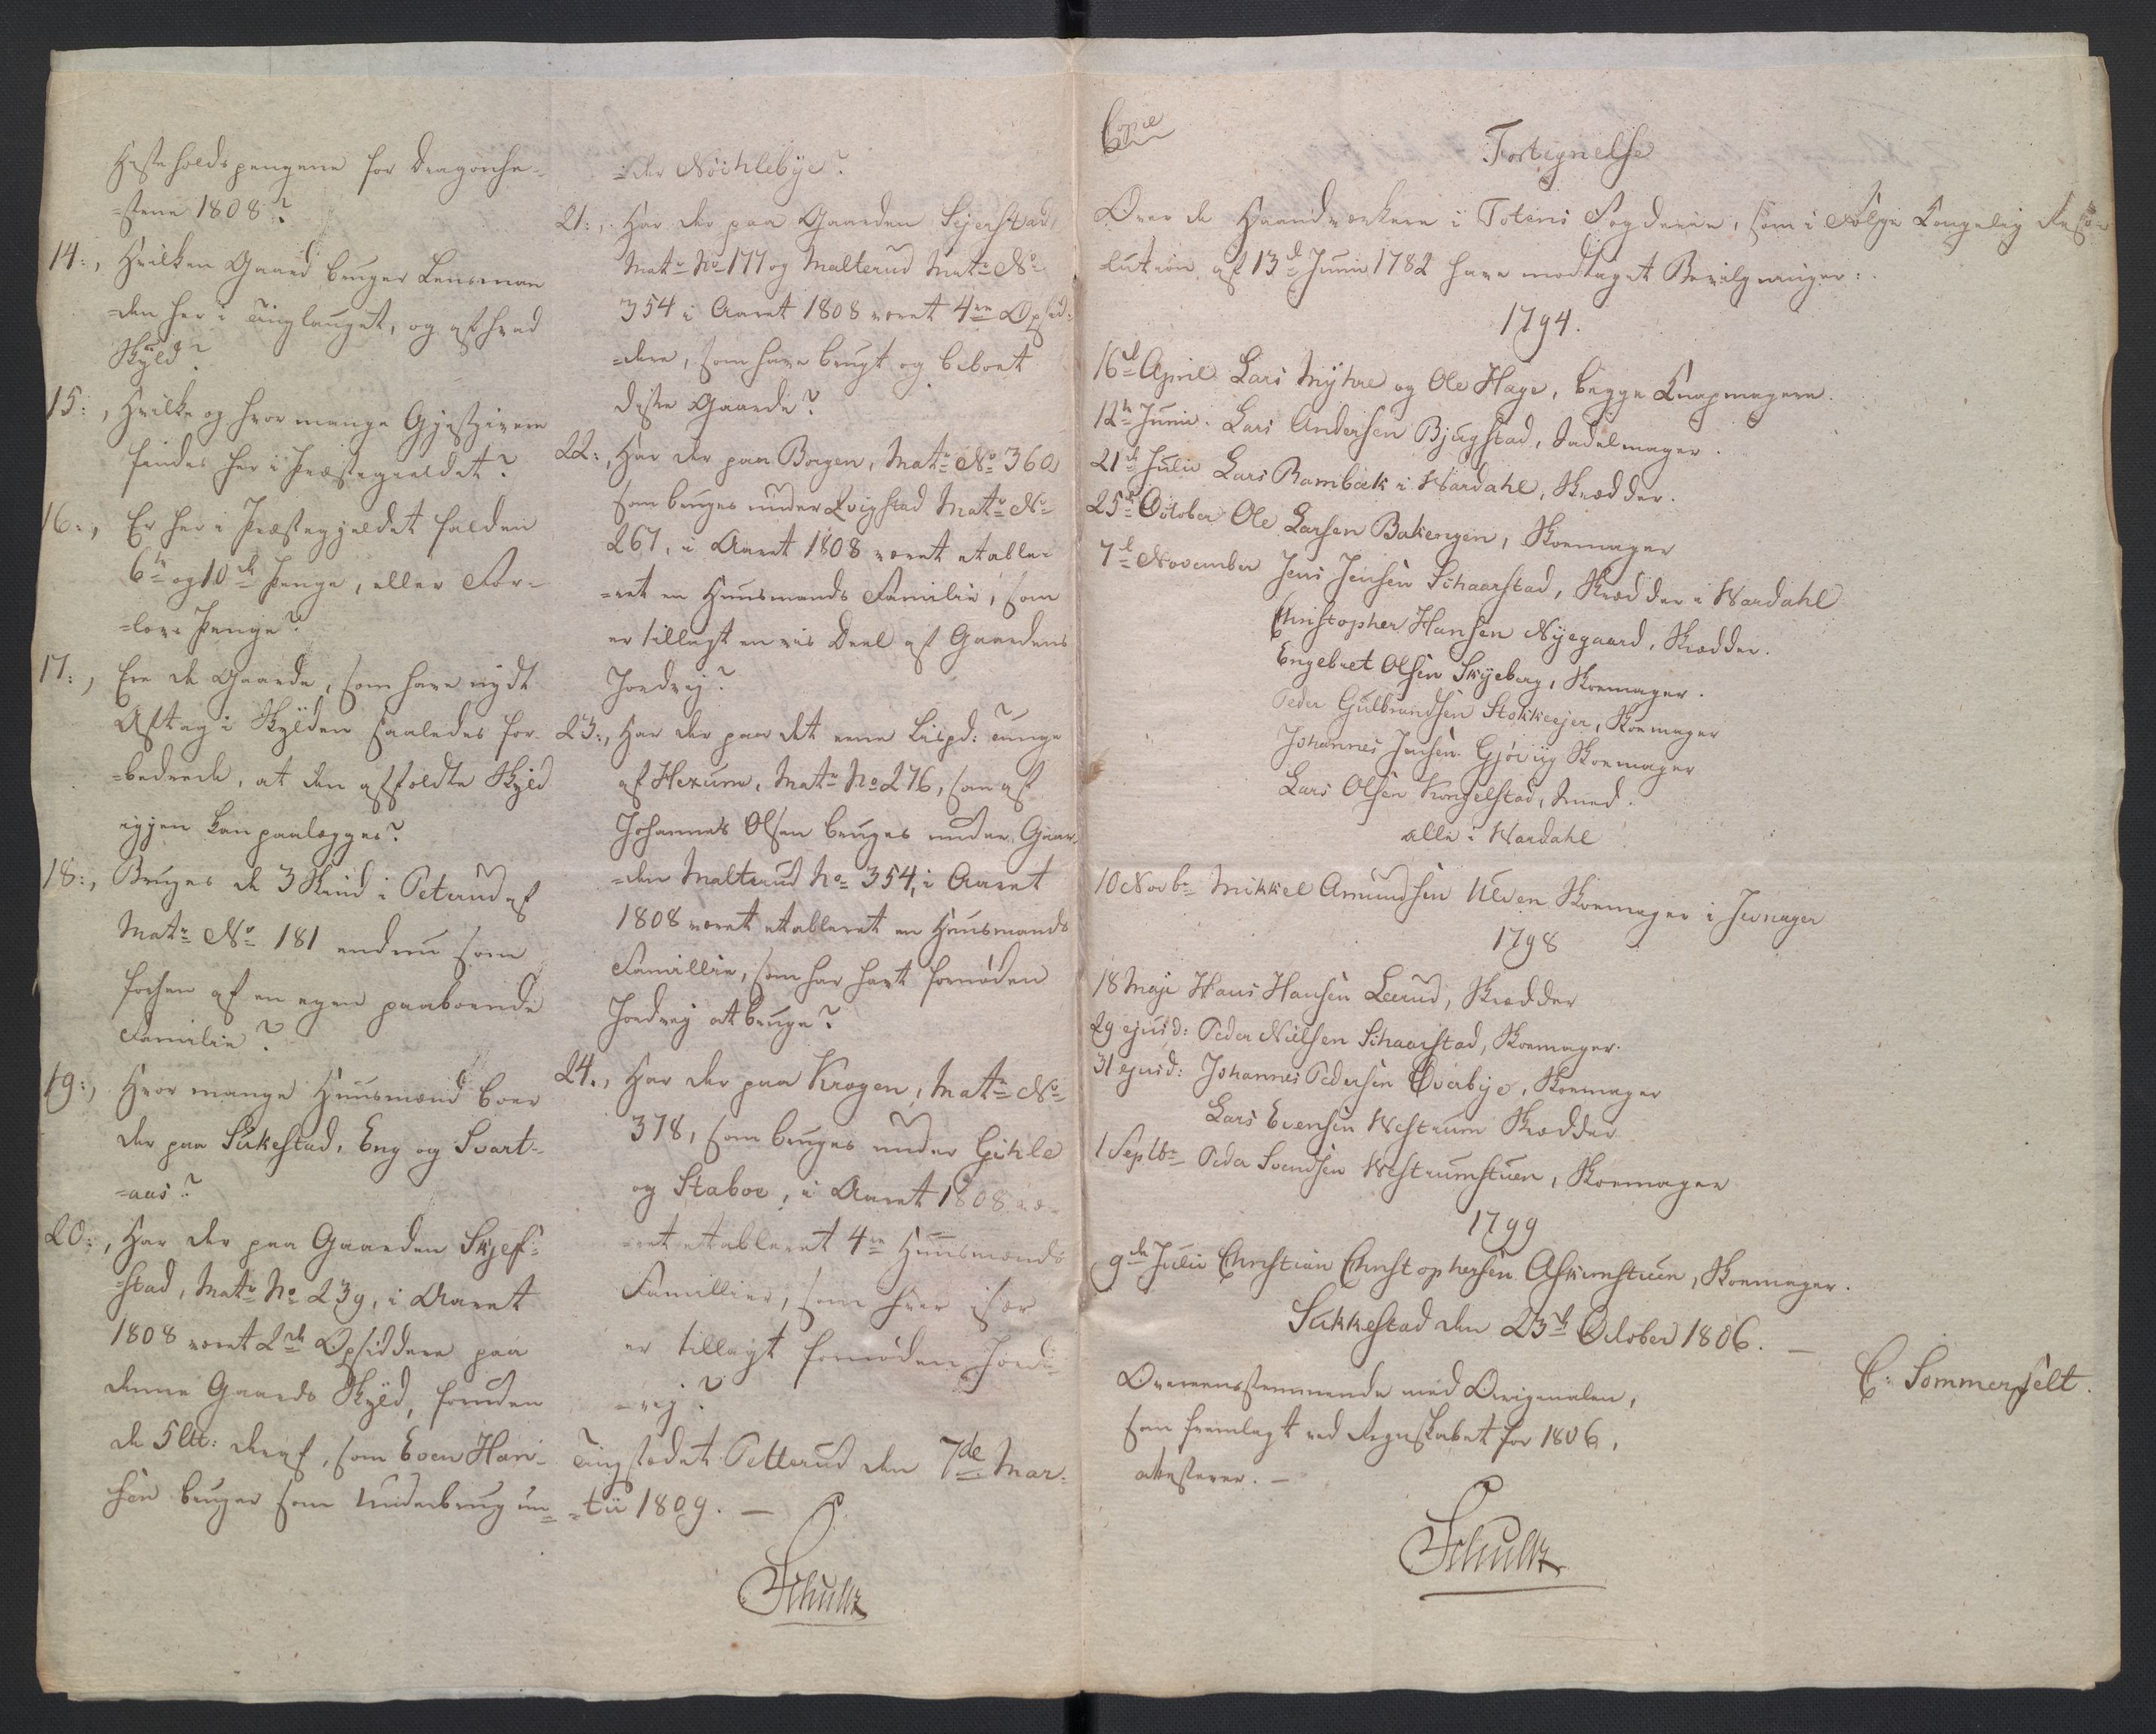 Hesteholdspengene for Dragonhe-
=stene 1808?
14:, Hvilken Gaard bruger Lensman
=den her i Tinglauget, og af hvad
Skyld?
15:, Hvilke og hvor mange Gjestgivere
findes her i Præstegieldet?
16:, Er her i Præstegjeldet falden
6te og 10de Penge, eller For-
=lovs Penge?
17:, Ere de Gaarde, som have nydt
Aftag i Skylden saaledes for-
=bedrede, at den affældte Skyld
igjen kan paalægges?
18:, Bruges de 3 Skind i Peterud af
Matr: No 181 endnu som
forhen af en egen paaboende
Familie?
19:, Hvor mange Huusmænd boer
der paa Sukestad, Eng og Svart-
=aas?
20:, Har der paa Gaarden Skjeff-
=stad, Matr: No 239, i Aaret
1808 været 2de Opsiddere paa
denne Gaards Skyld, foruden
de 5 lll: deraf, som Even Han-
sen bruger som Underbrug un=
=der Nøchlebye?
21:, Har der paa Gaarden Sejerstad,
Matr: No 177 og Malterud Matr: No
354 i Aaret 1808 været 4re Opsid-
=dere, som have brugt og beboet
disse Gaarde?
22:, Har der paa Borgen, Matr: No 360
som bruges under Qvigstad Matr: No
267, i Aaret 1808 været etable-
=ret en Huusmands Familie, som
er tillagt en vis Deel af Gaardens
Jordvej?
23:, Har der paa det eene Lispd: Tunge
af Hexum, Matr: No 276, som af
Johannes Olsen bruges under Gaar-
=den Malterud No 354, i Aaret
1808 været etableret en Huusmands
Familie, som har havt fornøden
Jordvej at bruge?
24., Har der paa Krogen, Matr: No
378, som bruges under Gihle
og Staboe, i Aaret 1808 væ-
=ret etableret 4re Huusmands
Familier, som hver især
er tillagt fornøden Jord-
=vej?
Tingstedet Petterud den 7de Mar-
=tii 1809. —
Schultz
Copie
Fortegnelse
Over de Haandværkere i Totens Fogderie, som i Følge Kongelig Reso-
=lution af 13de Junii 1782 have modtaget Bevilgninger:
1794.
16de April Lars Myhre og Ole Hage, begge Knapmagere.
12te Junii. Lars Andersen Bjugstad, Sadelmager.
21de Julii Lars Rambæk i Wardahl, Skrædder.
25de October Ole Larsen Bakengen, Skoemager
7de November Jens Jensen Schaarstad, Skrædder i Wardahl
Christopher Hansen Nyegaard, Skrædder.
Engebret Olsen Skyeberg, Skoemager.
Peder Gulbrandsen Stokkeejer, Skoemager
Johannes Jensen Gjøvig Skoemager
Lars Olsen Kongelstad, Smed.
alle i Wardahl
10 Novbr Mikkel Amundsen Ulven Skoemager i Jevnager
1798
18 Maji Hans Hansen Leerud, Skrædder
29 ejusd: Peder Nielsen Schaarstad, Skoemager.
31 ejusd: Johannes Pedersen Overbye, Skoemager
Lars Evensen Westrum Skrædder
1 Septbr Peder Svendsen Westrumstuen, Skoemager
1799
9de Julii Christian Christophersen Askimstuen, Skoemager.
Sukkestad den 23de October 1806. —
C: Sommerfelt.
Overeensstemmende med Originalen,
som fremlagt ved Regnskabet for 1806,
attesteres. —
Schultz